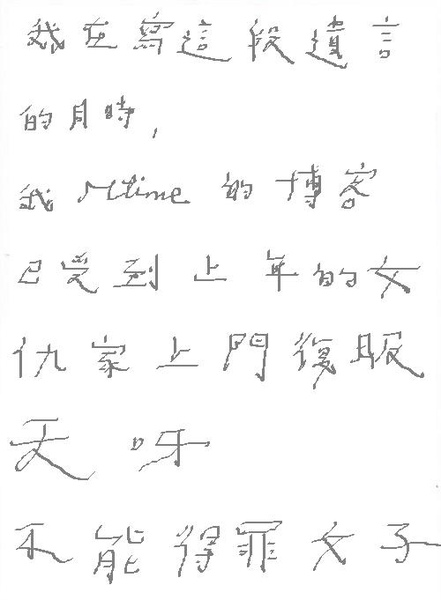 我在寫這段遺言
的月時,
我 Mtime 的博客
已受到上年的女
仇家上門復服
天呀
不能得罪女子